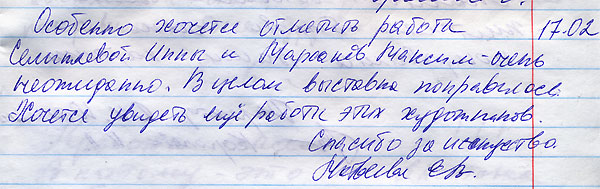 Особенно хочется отметить работы 17.02
Инны и Максим - очень
неожиданно. В целом выставка понравилась.
Хочется увидеть ещё работы этих художников.
Спасибо за искусство.